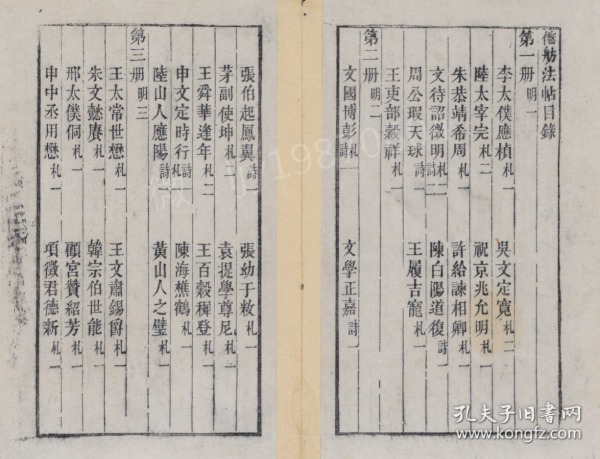 僧舫法帖目錄
第一册 明一
李太僕應楨 札一 吳文定寬 札二
陸太宰完 札二 祝京兆允明 札一
朱恭靖希周 札一 許給諫相卿 札一
文待詔徵明 札二 詩一 陳白陽道復 詩一
周公瑕天球 詩一 王履吉寵 札一
王吏部穀祥 札一
第二册 明二
文國博彭 札一 詩一 文學正嘉 詩一
張伯起鳳翼 詩一 張幼于敉 札一
茅副使坤 札二 袁提學尊尼 札一
王舜華逢年 札二 王百穀穉登 札一
申文定時行 札一 詩一 陳海樵鶴 札一
陸山人應陽 詩一 黃山人之璧 札一
第三册 明三
王太常世懋 札一 王文肅錫爵 札一
朱文懿賡 札一 韓宗伯世能 札一
邢太僕侗 札一 顧宮贊紹芳 札一
申中丞用懋 札一 項徵君德新 札一
孔夫子旧书网
www.kongfz.com